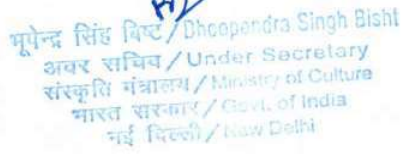 भूपेन्द्र सिंह बिष्ट/Bhoopendra Singh Bisht
अवर सचिव/Under Secretary
संस्कृति मंत्रालय/Ministry of Culture
भारत सरकार/Govt. of India
नई दिल्ली/New Delhi